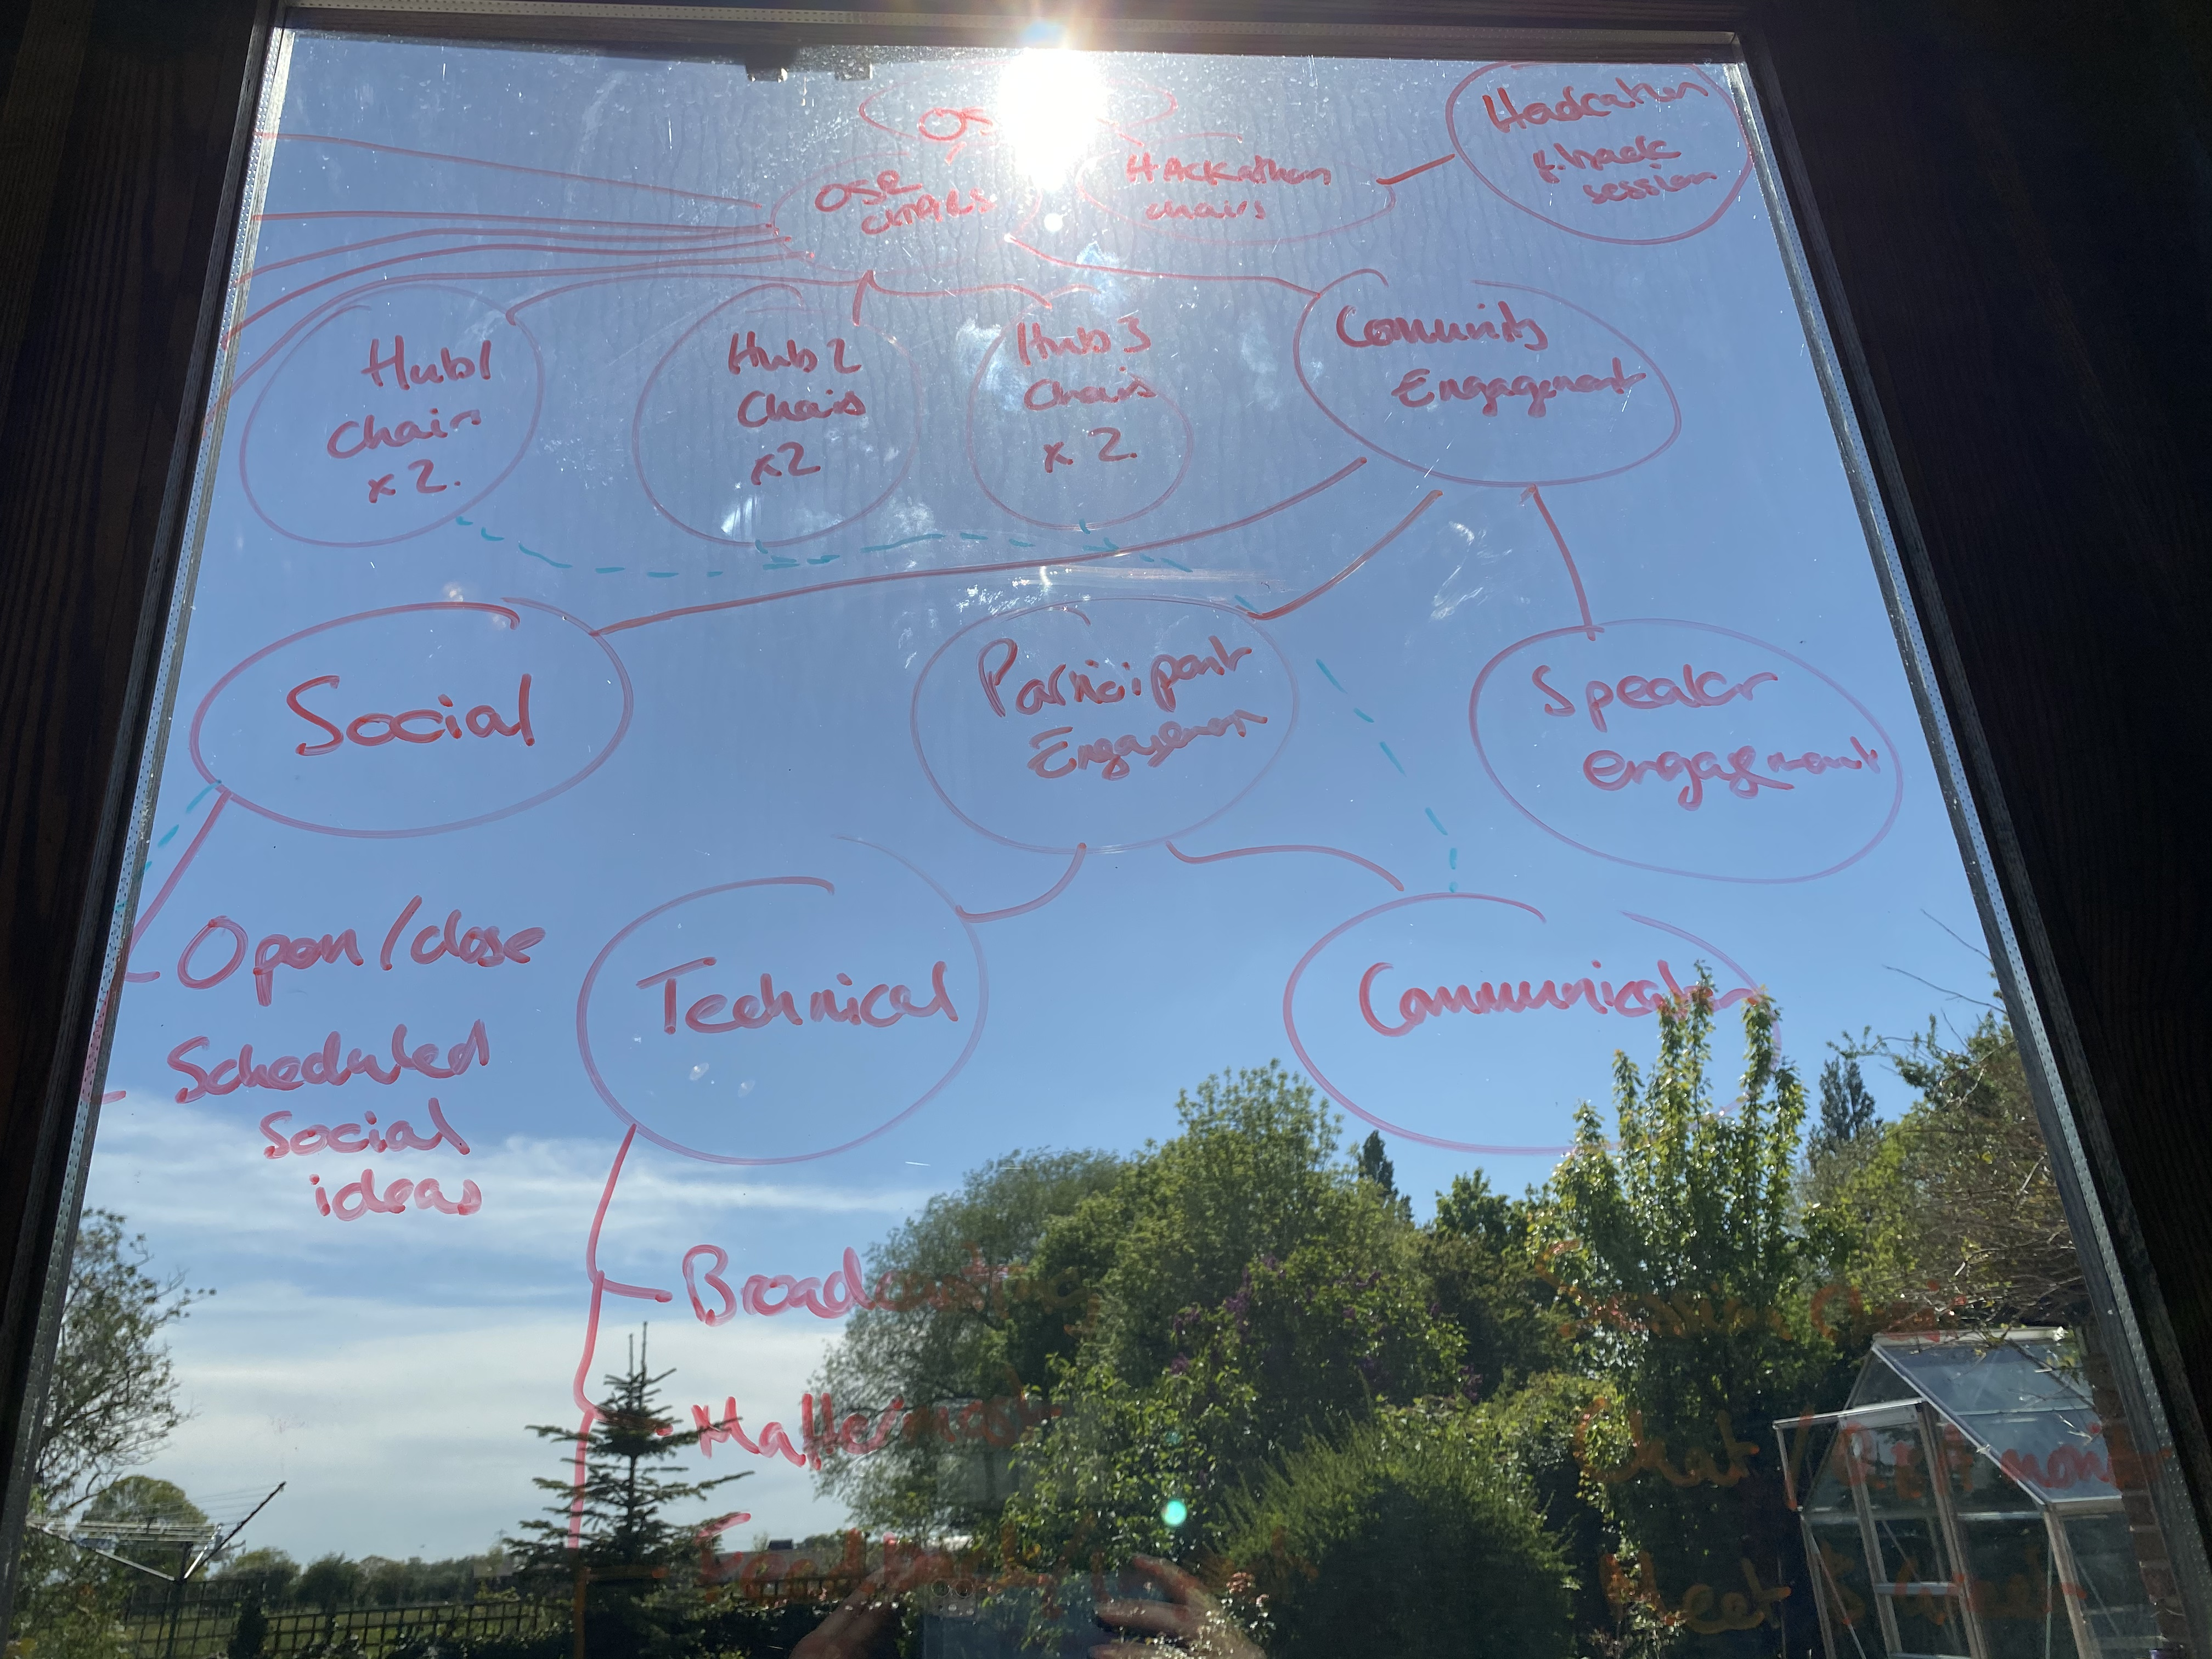 Hackathon
& hack
session
OSR
chairs
HAckathon
chairs
Hub1
chairs
x 2.
Hub 2
Chairs
x2
Hub 3
Chairs
x 2.
Community
Engagement
Social
Participant
Engagement
Speaker
engagement
Open/close
Scheduled
Social
ideas
Technical
Communication
Broadcasting
Mattermost
Chat /
Meet &